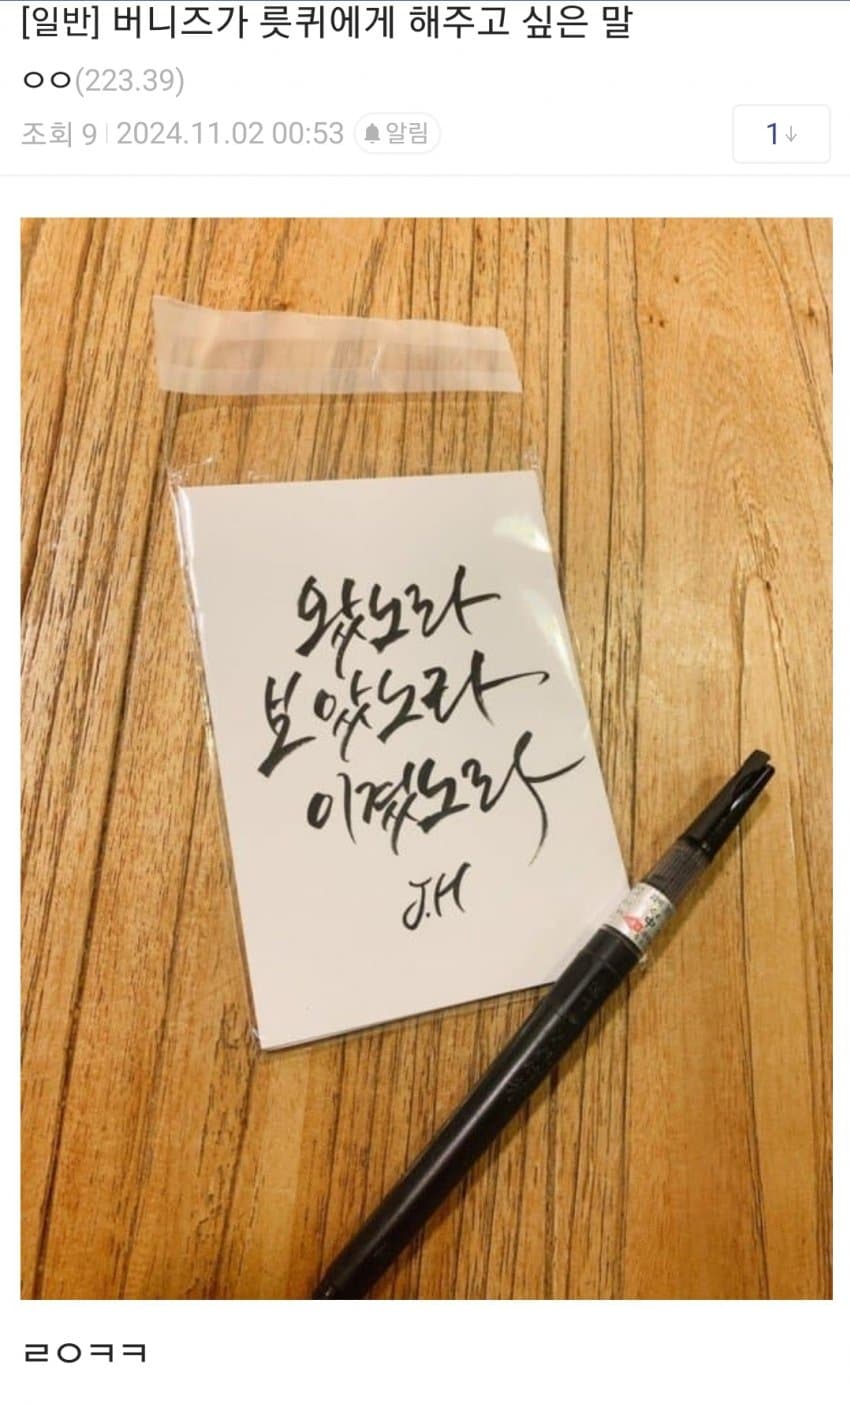 [일반] 버니즈가 릇퀴에게 해주고 싶은 말
ㅇㅇ(223.39)
조회 9 2024.11.02 00:53 알림
1↓
왔노라
보았노라
이겼노라
J.H
中
ㄹㅇㅋㅋ